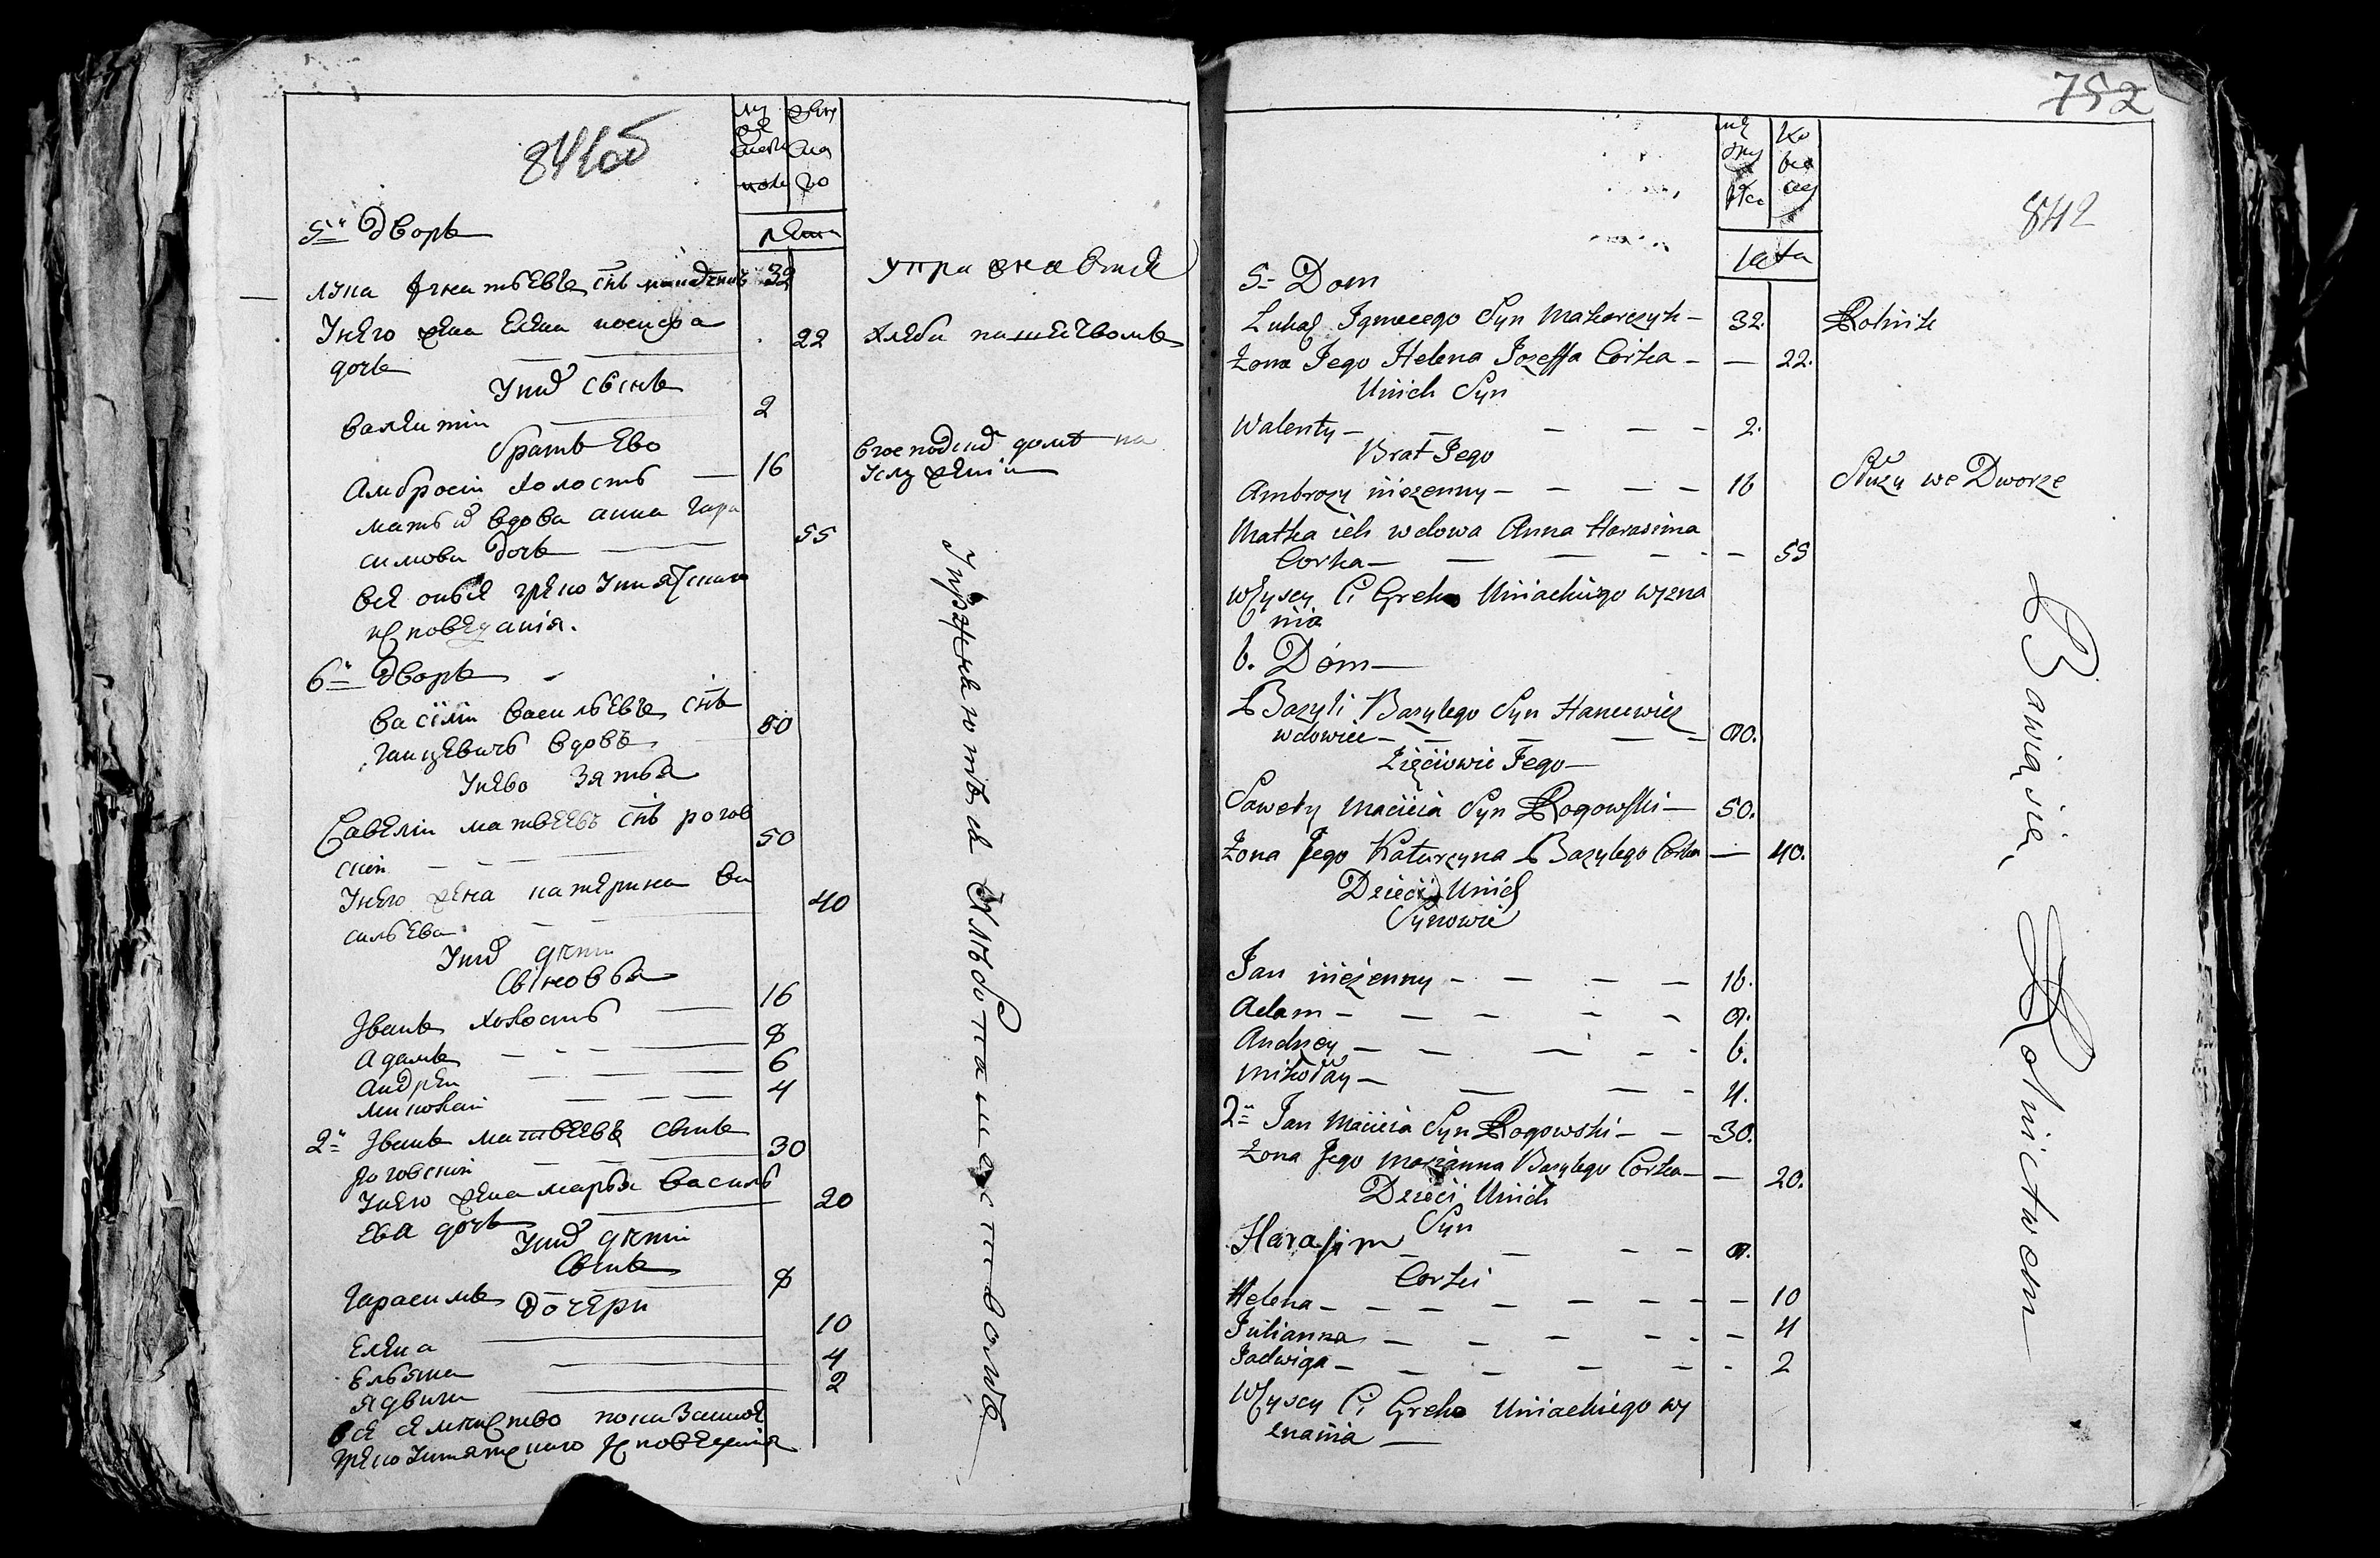 841 об
му
же
ска
пола
жен
ска
го
лета
5й дворъ
лука Игнатьевъ снъ 32 упражнѣтся
У него жена Елена иосифа 22 хлѣбопашествомъ
дочь
У них сынъ
валентий 2
братъ Ево
Амбросий холостъ 16 в господском доме на
услужении
мать их вдова анна гара
симова дочь 55
все оные греко униятского
исповедания.
6й дворъ
василий васильевъ снъ
ганцевичъ вдовъ 80
У нево зятья
Савелий матвеевъ снъ рогов
ский 50
У него жена катерина ва
сильева 40
У них дети
сыновья
Иванъ холостъ 16
Адамъ 8
Андрей 6
миколай 4
2й Иванъ матвеевъ сынъ
роговский 30
У него жена марья василь
ева дочь 20
У них дети
Сынъ
Гарасимъ 8
дочери
Елена 10
Ульяна 4
Ядвига 2
все семейство показанное
греко униятского исповедания
Упражняются хлѣбопашествомъ
752
842
męz
czy
zka
Ko
bie
cey
Lata
5= Dom
Lukaś Ignacego Syn Makarczyk – 32. Rolnik
Żona Jego Helena Jozeffa Corka – – 22.
U nich Syn
Walenty – – – – 2.
Brat Jego
Ambrozy nieżenny – – – – 16 Służy we Dworze
Matka ich wdowa Anna Harasima
Corka – – – – – 55
Wszyscy Ci Greko Uniackiego wyzna
nia
6. Dom –
Bazyli Bazylego Syn Hancewicz
wdowiec – – – – 80.
Zięciowie Jego –
Sawery Macieia Syn Rogowski – 50.
Żona Jego Katarzyna Bazylego Corka – 40.
Dzieci U nich
Synowie
Jan nieżenny – – – – 16.
Adam – – – – – 8.
Andrzey – – – – – 6.
Mikołay – – – – 4.
2= Jan Macieia Syn Rogowski – – 30.
Żona Jego Marianna Bazylego Corka – – 20.
Dzieci U nich
Syn
Harasim – – – – 8.
Corki
Helena – – – – – – – – 10
Julianna – – – – – – 4
Jadwiga – – – – – – 2
Wszyscy Ci Greko Uniackiego wy
znania –
Bawią się Rolnictwem